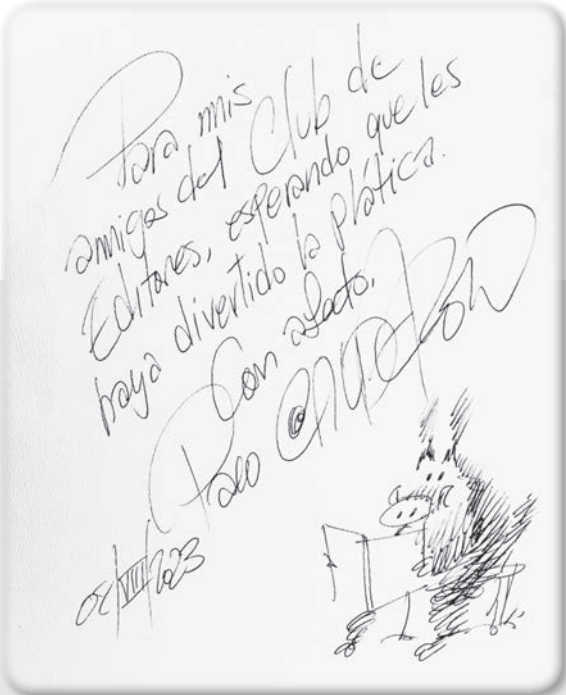 Para mis
amigos del Club de
Editores, esperando que les
haya divertido la plática.
Con afecto,
Paco CALDERÓN
02/VIII/2023